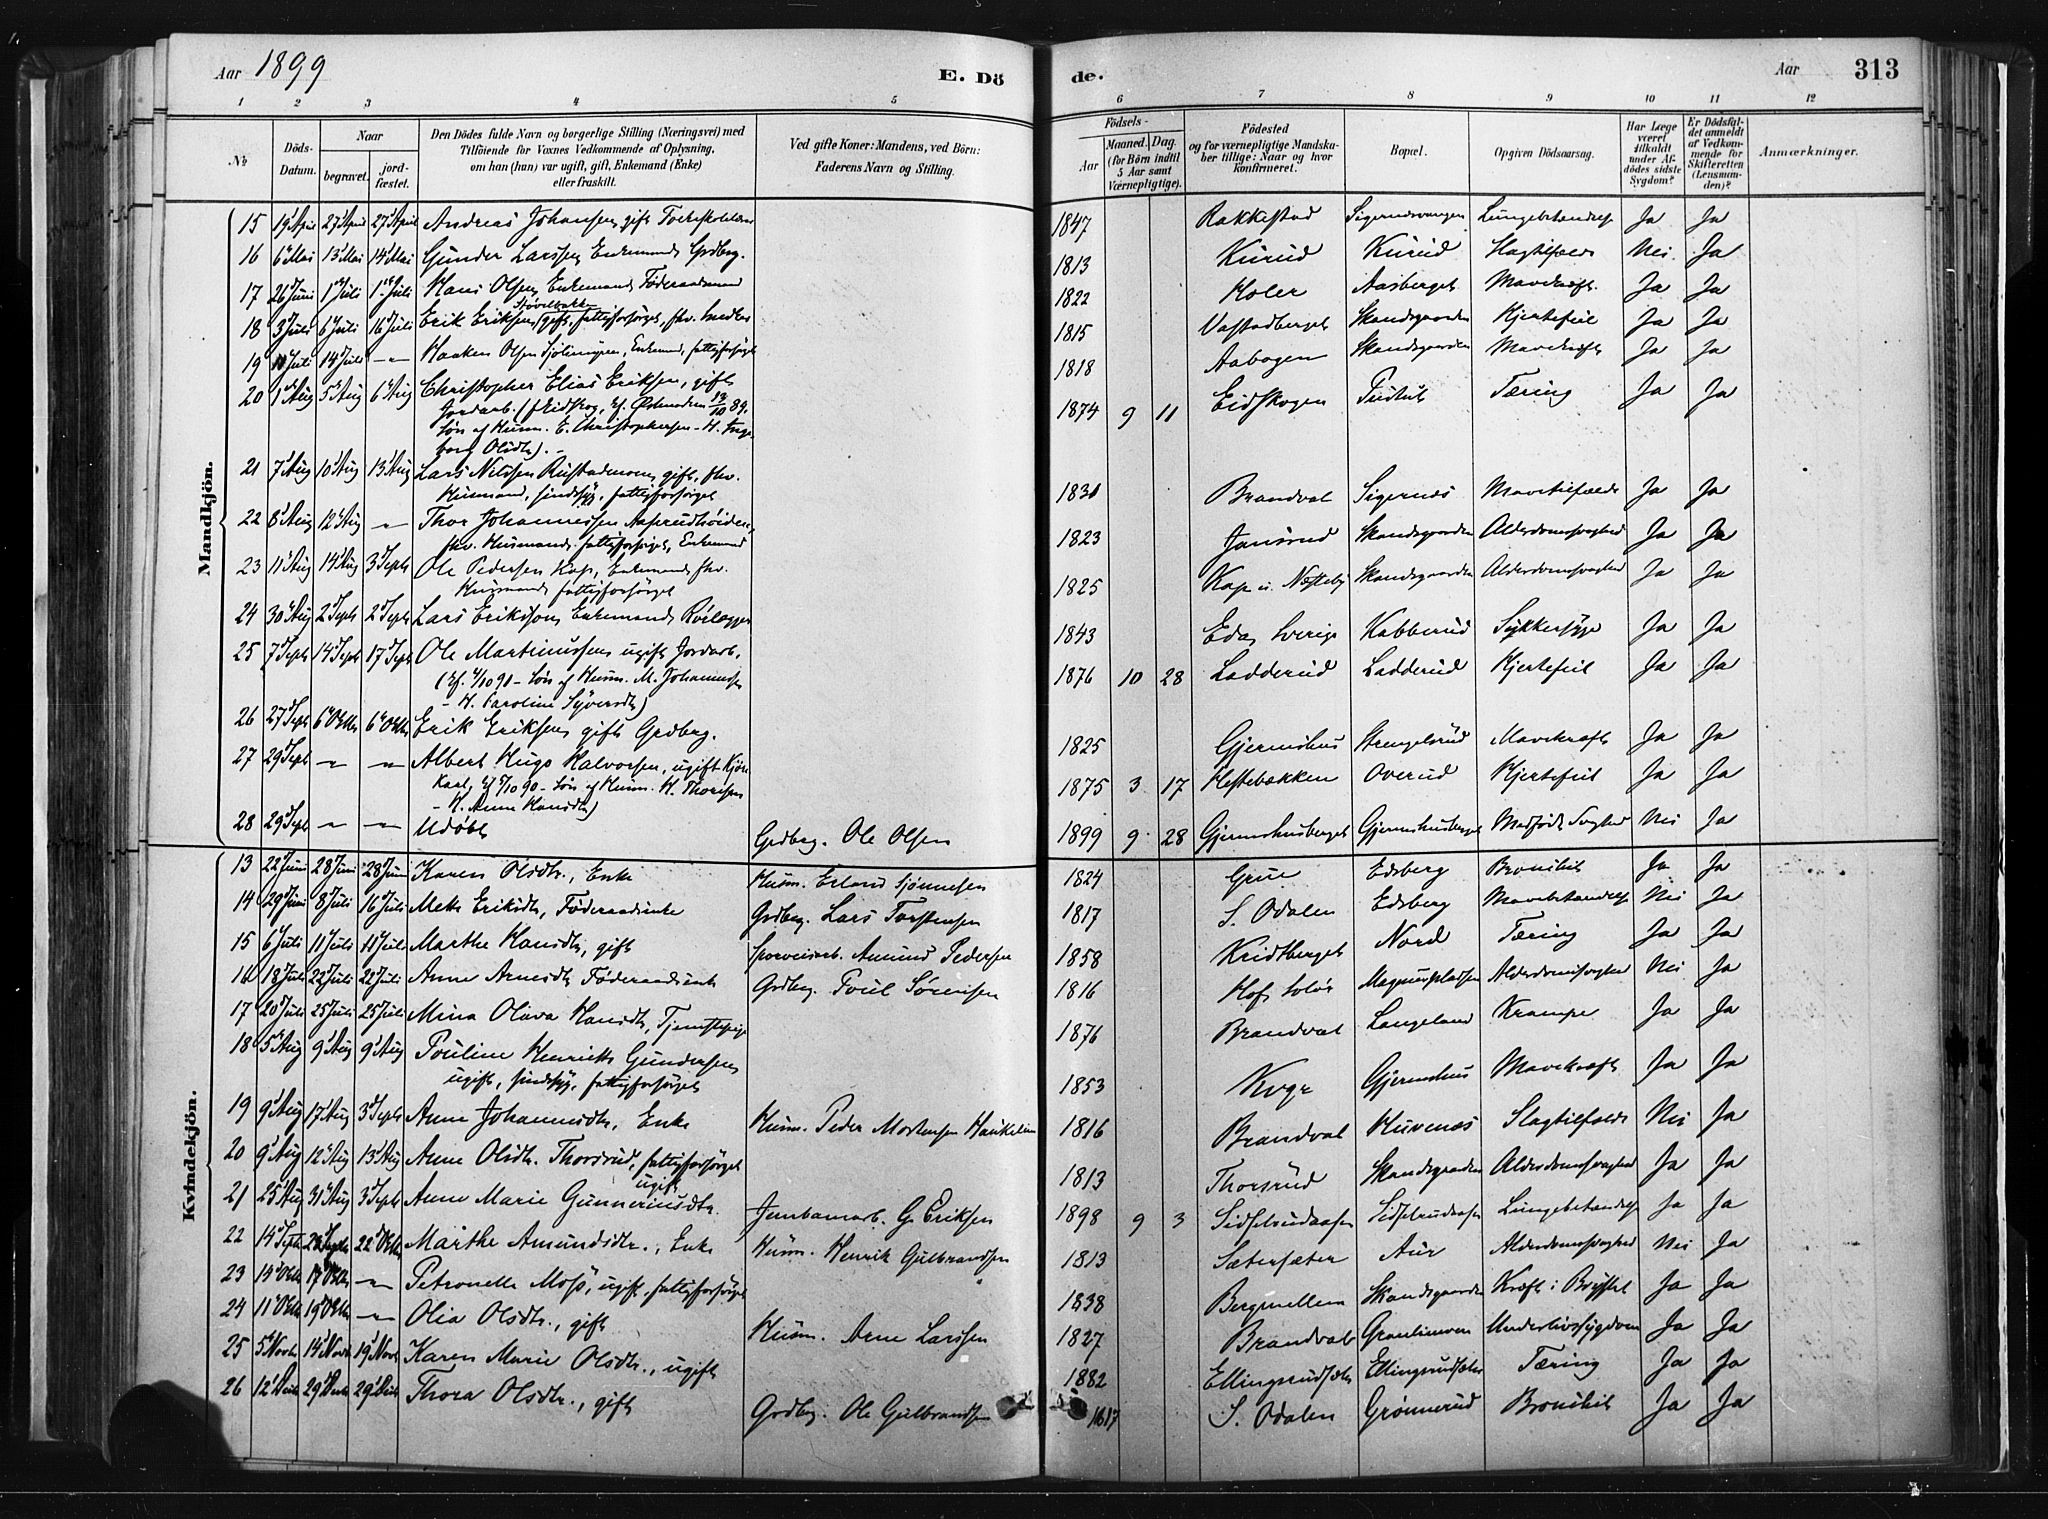 Aar 1899 E. Dö de. Aar 313
1 2 3 4 5 6 7 8 9 10 11 12
№ Döds-Datum. Naar begravet. jordfæstet. Den Dödes fulde Navn og borgerlige Stilling (Næringsvei) med Tilföiende for Voxnes Vedkommende af Oplysning, om han (hun) var ugift, gift, Enkemand (Enke) eller fraskilt. Ved gifte Koner: Mandens, ved Börn: Faderens Navn og Stilling. Födsels- Aar Maaned. Dag. (for Börn indtil 5 Aar samt Værnepligtige). Födested og for værnepligtige Mandskaber tillige: Naar og hvor konfirmeret. Bopæl. Opgiven Dödsaarsag. Har Læge været tilkaldt under Afdödes sidste Sygdom? Er Dödsfaldet anmeldt af Vedkommende for Skifteretten (Lensmanden)? Anmærkninger.
Mandkjön.
15 19 April 27 April 27 April Andreas Johansen, gift 1847 Rakkestad Lungebetændelse Ja Ja
16 6 Mai 13 Mai 14 Mai Gunder Larssen, Enkemand, Grdbrg. 1813 Kurud Kurud Slagtilfælde Nei Ja
17 26 Juni 1 Juli 1 Juli Hans Olsen, Enkemand, Föderaadsmand 1822 Holer Aasberget Mavekræft Ja Ja
18 3 Juli 6 Juli 16 Juli Erik Eriksen, gift, fattigforsörget, fhv. 1815 Vastadberget Skandsgaarden Hjertefeil Ja Ja
19 Juli 14 Juli — Haaken Olsen, Enkemand, fattigforsörget 1818 Aabogen Skandsgaarden Mavekræft Ja Ja
20 1 Aug 5 Aug 6 Aug Christopher Elias Eriksen, gift 1874 9 11 Eidskogen Tæring Ja Ja
Jordarb. (f. Eidskog, kf. 13/10 89.
Sön af Husm. E. Christophersen - H. Inge-
borg Olsdtr.). -
21 7 Aug 10 Aug 13 Aug Lars Nilssen Rustadmoen, gift, fhv. 1831 Brandval Sigernæs Mavetilfælde Ja Ja
Husmand, sindssyg, fattigforsörget
22 8 Aug 12 Aug — Thor Johannessen Aaprudhöiden, 1823 Jansrud Skandsgaarden Alderdomssvaghed Ja Ja
fhv. Husmand, fattigforsörget, Enkemand
23 11 Aug 14 Aug 3 Septr Ole Pedersen Kap, Enkemand, fhv. 1825 Kap u. Næsteby Skandsgaarden Alderdomssvaghed Ja Ja
Husmand, fattigforsörget
24 30 Aug 2 Septr 2 Septr Lars Eriksson, Enkemand, 1843 Eda, Sverige Kabberud Sukkersyge Ja Ja
25 7 Septr 14 Septr 17 Septr Ole Martinussen, ugift, Jordarb. 1876 10 28 Ladderud Ladderud Hjertefeil Ja Ja
(kf. 4/10 91 - Sön af Husm. M. Johannessen
- H. Karoline Syversdtr)
26 27 Sept 6 Oktbr 6 Oktbr Erik Eriksen, gift, Grdbrg. 1825 Gjermshus Strengelsrud Mavekræft Ja Ja
27 29 Sept — — Albert Hugo Halvorsen, ugift, Kjöre- 1875 3 17 Hestebækken Overud Hjertefeil Ja Ja
karl, kf. 5/10 90 - Sön af Husm. H. Thoresen
- H. Anne Hansdtr)
28 29 Sept — — Udöbt Grdbrg. Ole Olsen 1899 9 28 Gjermshusberget Gjermshusberget Medfödt Svaghed Nei Ja
Kvindekjön.
13 22 Juni 28 Juni 28 Juni Karen Olsdtr., Enke Husm. Erland Sjönnesen 1824 Grue Edsberg Bronchit Ja Ja
14 29 Juni 8 Juli 16 Juli Mette Eriksdtr, Föderaadsenke Grdbrg. Lars Torstensen 1817 S. Odalen Edsberg Mavebetændelse Nei Ja
15 6 Juli 11 Juli 11 Juli Marthe Hansdtr, gift Sporveisarb. Amund Pedersen 1858 Kridtberget Nord Tæring Ja Ja
16 18 Juli 22 Juli 22 Juli Anne Arnesdtr, Föderaadsenke Grdbrg. Poul Sörensen 1816 Hof, Solör Magnusplassen Alderdomssvaghed Nei Ja
17 20 Juli 25 Juli 25 Juli Mina Olava Hansdtr, Tjenestepige 1876 Brandval Langeland Krampe Ja Ja
18 5 Aug 9 Aug 9 Aug Pouline Henriette Gundersen, 1853 Gjermshus Mavekræft Ja Ja
ugift, sindssyg, fattigforsörget
19 9 Aug 17 Aug 3 Septr Anne Johannesdtr., Enke Husm. Peder Mortensen 1816 Brandval Huvenæs Slagtilfælde Nei Ja
20 9 Aug 12 Aug 13 Aug Anne Olsdtr. Thorsrud, fattigforsörget 1813 Thorsrud Skandsgaarden Alderdomssvaghed Ja Ja
ugift
21 25 Aug 31 Aug 3 Septr Anne Marie Gunneriusdtr. Jernbanearb. G. Eriksen 1898 9 3 Sidselrudaasen Sidselrudaasen Lungebetændelse Ja Ja
22 14 Septr 22 Oktbr Marthe Amundsdtr., Enke Husm. Henrik Gulbrandsen 1813 Sætersæter Aur Alderdomssvaghed Nei Ja
23 14 Oktbr 17 Oktbr — Petronelle Moss, ugift, fattigforsörget 1838 Bergmellem Skandsgaarden Kræft i Brystet Ja Ja
24 11 Oktbr 19 Oktbr — Olia Olsdtr., gift Husm. Arne Larssen 1827 Brandval Underlivssygdom Ja Ja
25 5 Novbr 14 Novbr 19 Novbr Karen Marie Olsdtr., ugift 1882 Ellingsrudsæter Ellingsrudsæter Tæring Ja Ja
26 12 Decbr 29 Decbr 29 Decbr Thora Olsdtr., gift Grdbrg. Ole Gulbrandsen 1817 S. Odalen Grönnerud Bronchit Ja Ja